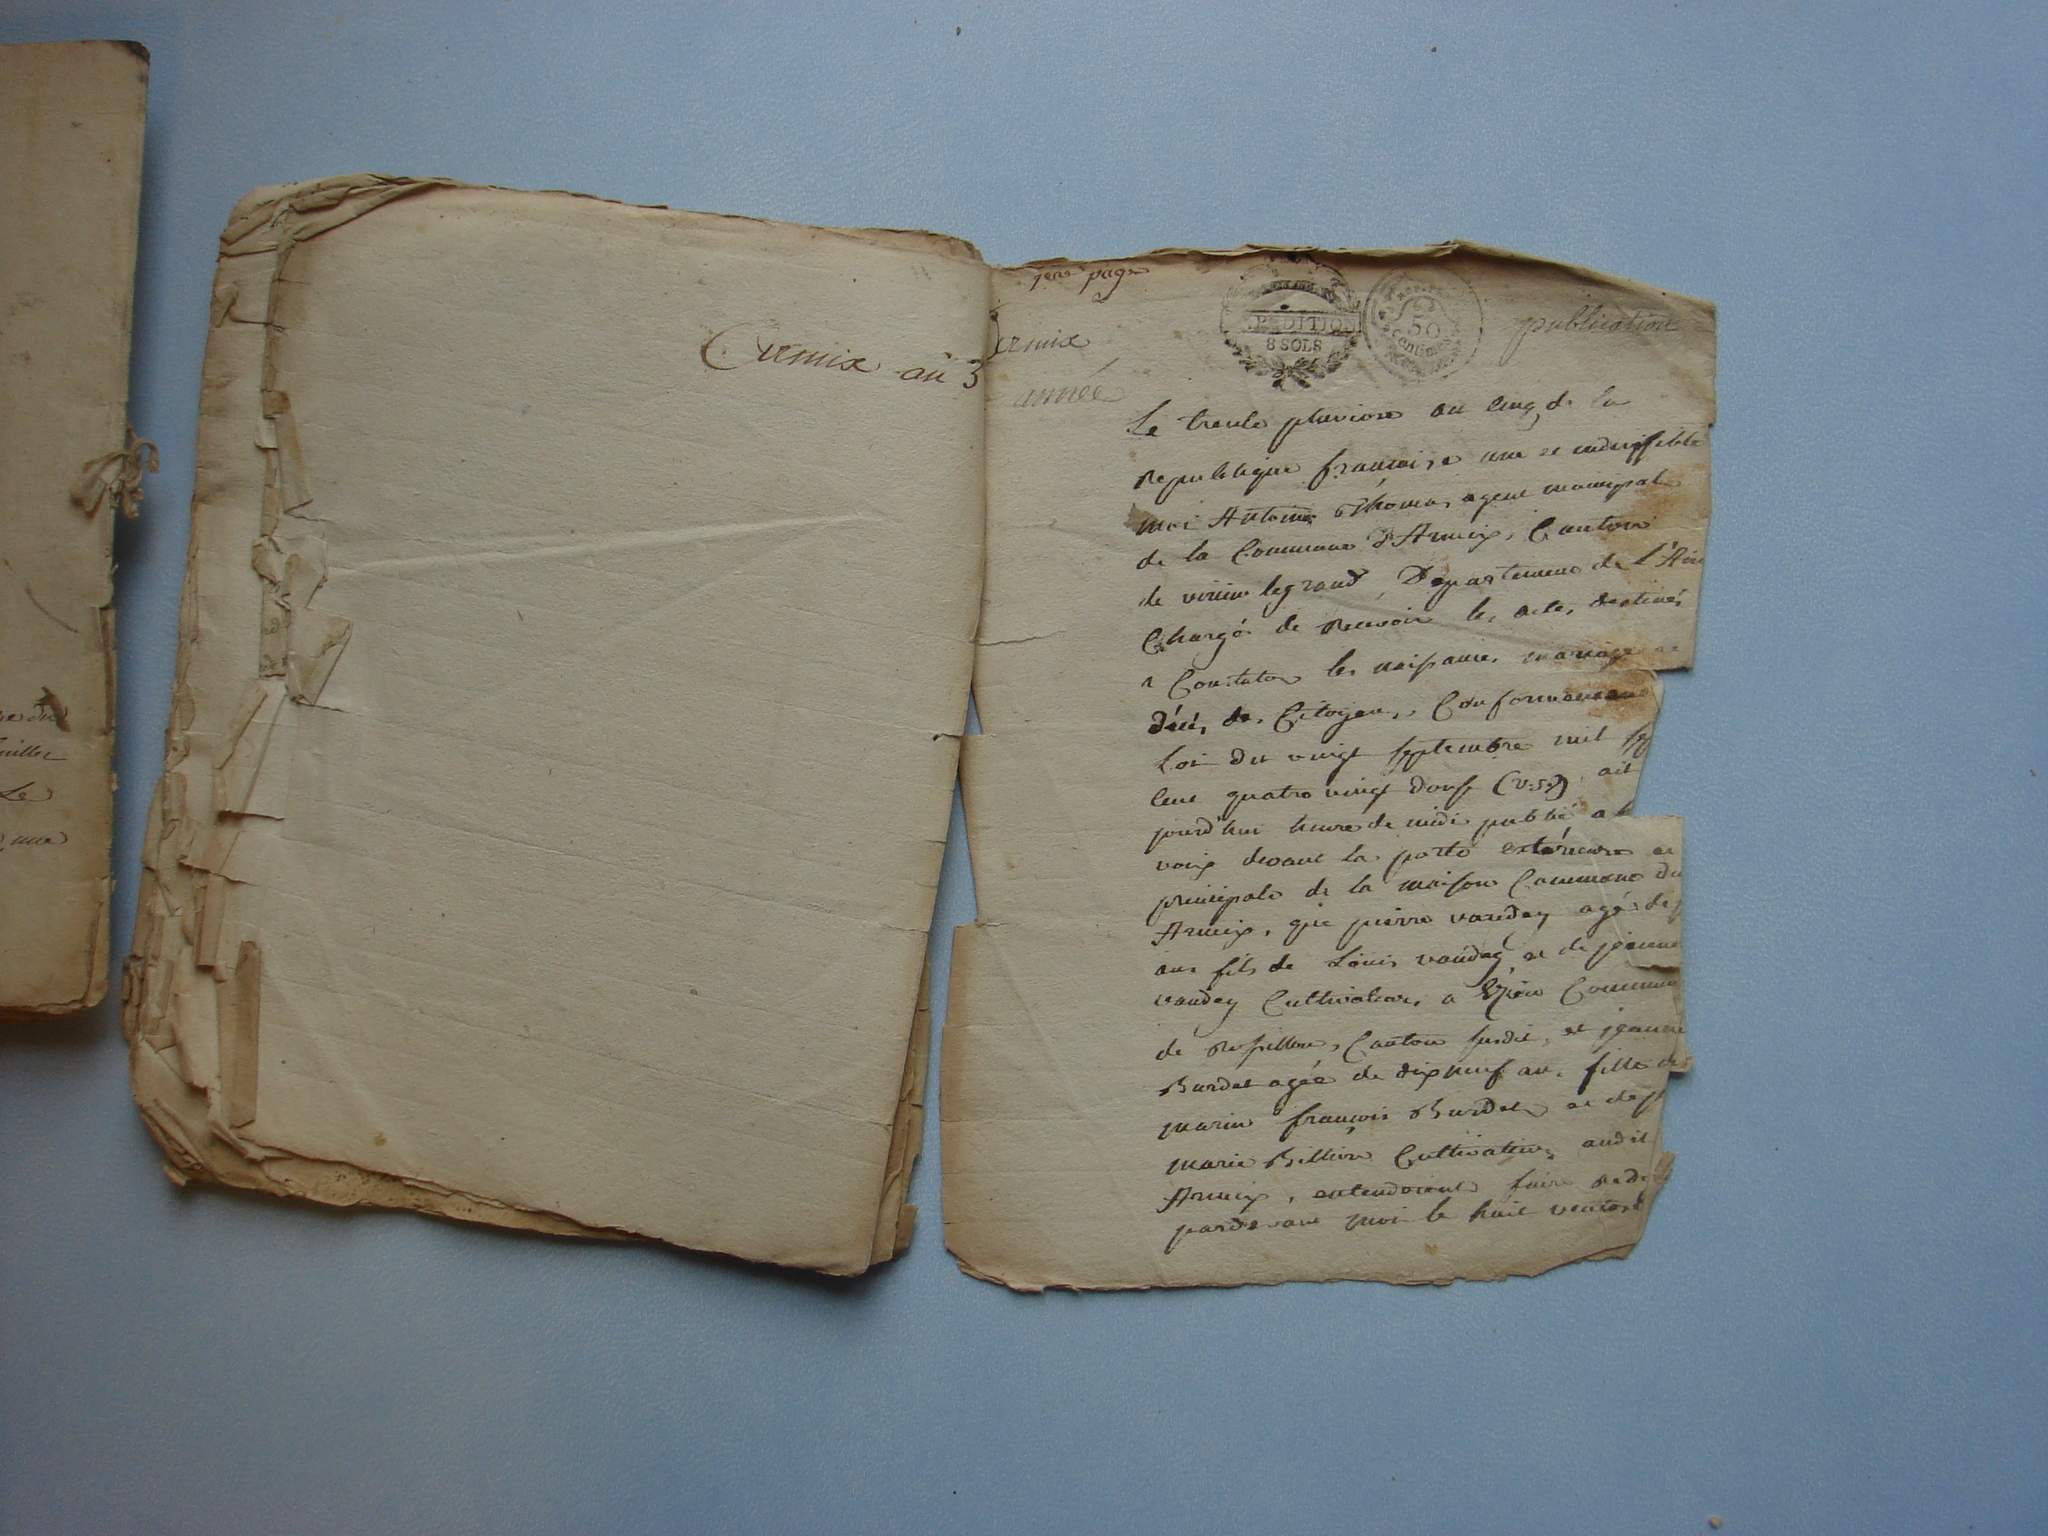 re du
Le
une
armix an 5
1ere page
armix
année
EXPEDITION
8 SOLS
50
Centimes
publication
Le trente pluviose an cinq de la
republique francoise une et indivissible
moi Antoine Thomas agent municipal
de la Commune d'Armix, Canton
de virieu legrand, Departement de l'Ain
Chargé de recevoir les actes destinés
a Constater les naissances, mariage et
décés des Citoyens, Conformement
Loi du vingt septembre mil sep
cent quatre vingt douze (v.st) ait
jourd'hui heure de midi publié a h
voix devant la porte exterieure et
principale de la maison Commune du
Armix, que pierre vaudey agé de
ans fils de Louis vaudey et de jeanne
vaudey Cultivateurs a Commune
de Rossillon, Canton susdit, et jeanne
Burdet agée de dix neuf ans fille de
marin francois Burdet et de
marie Billion Cultivateurs audit
Armix, entendoient faire
pardevant moi le huit ventose